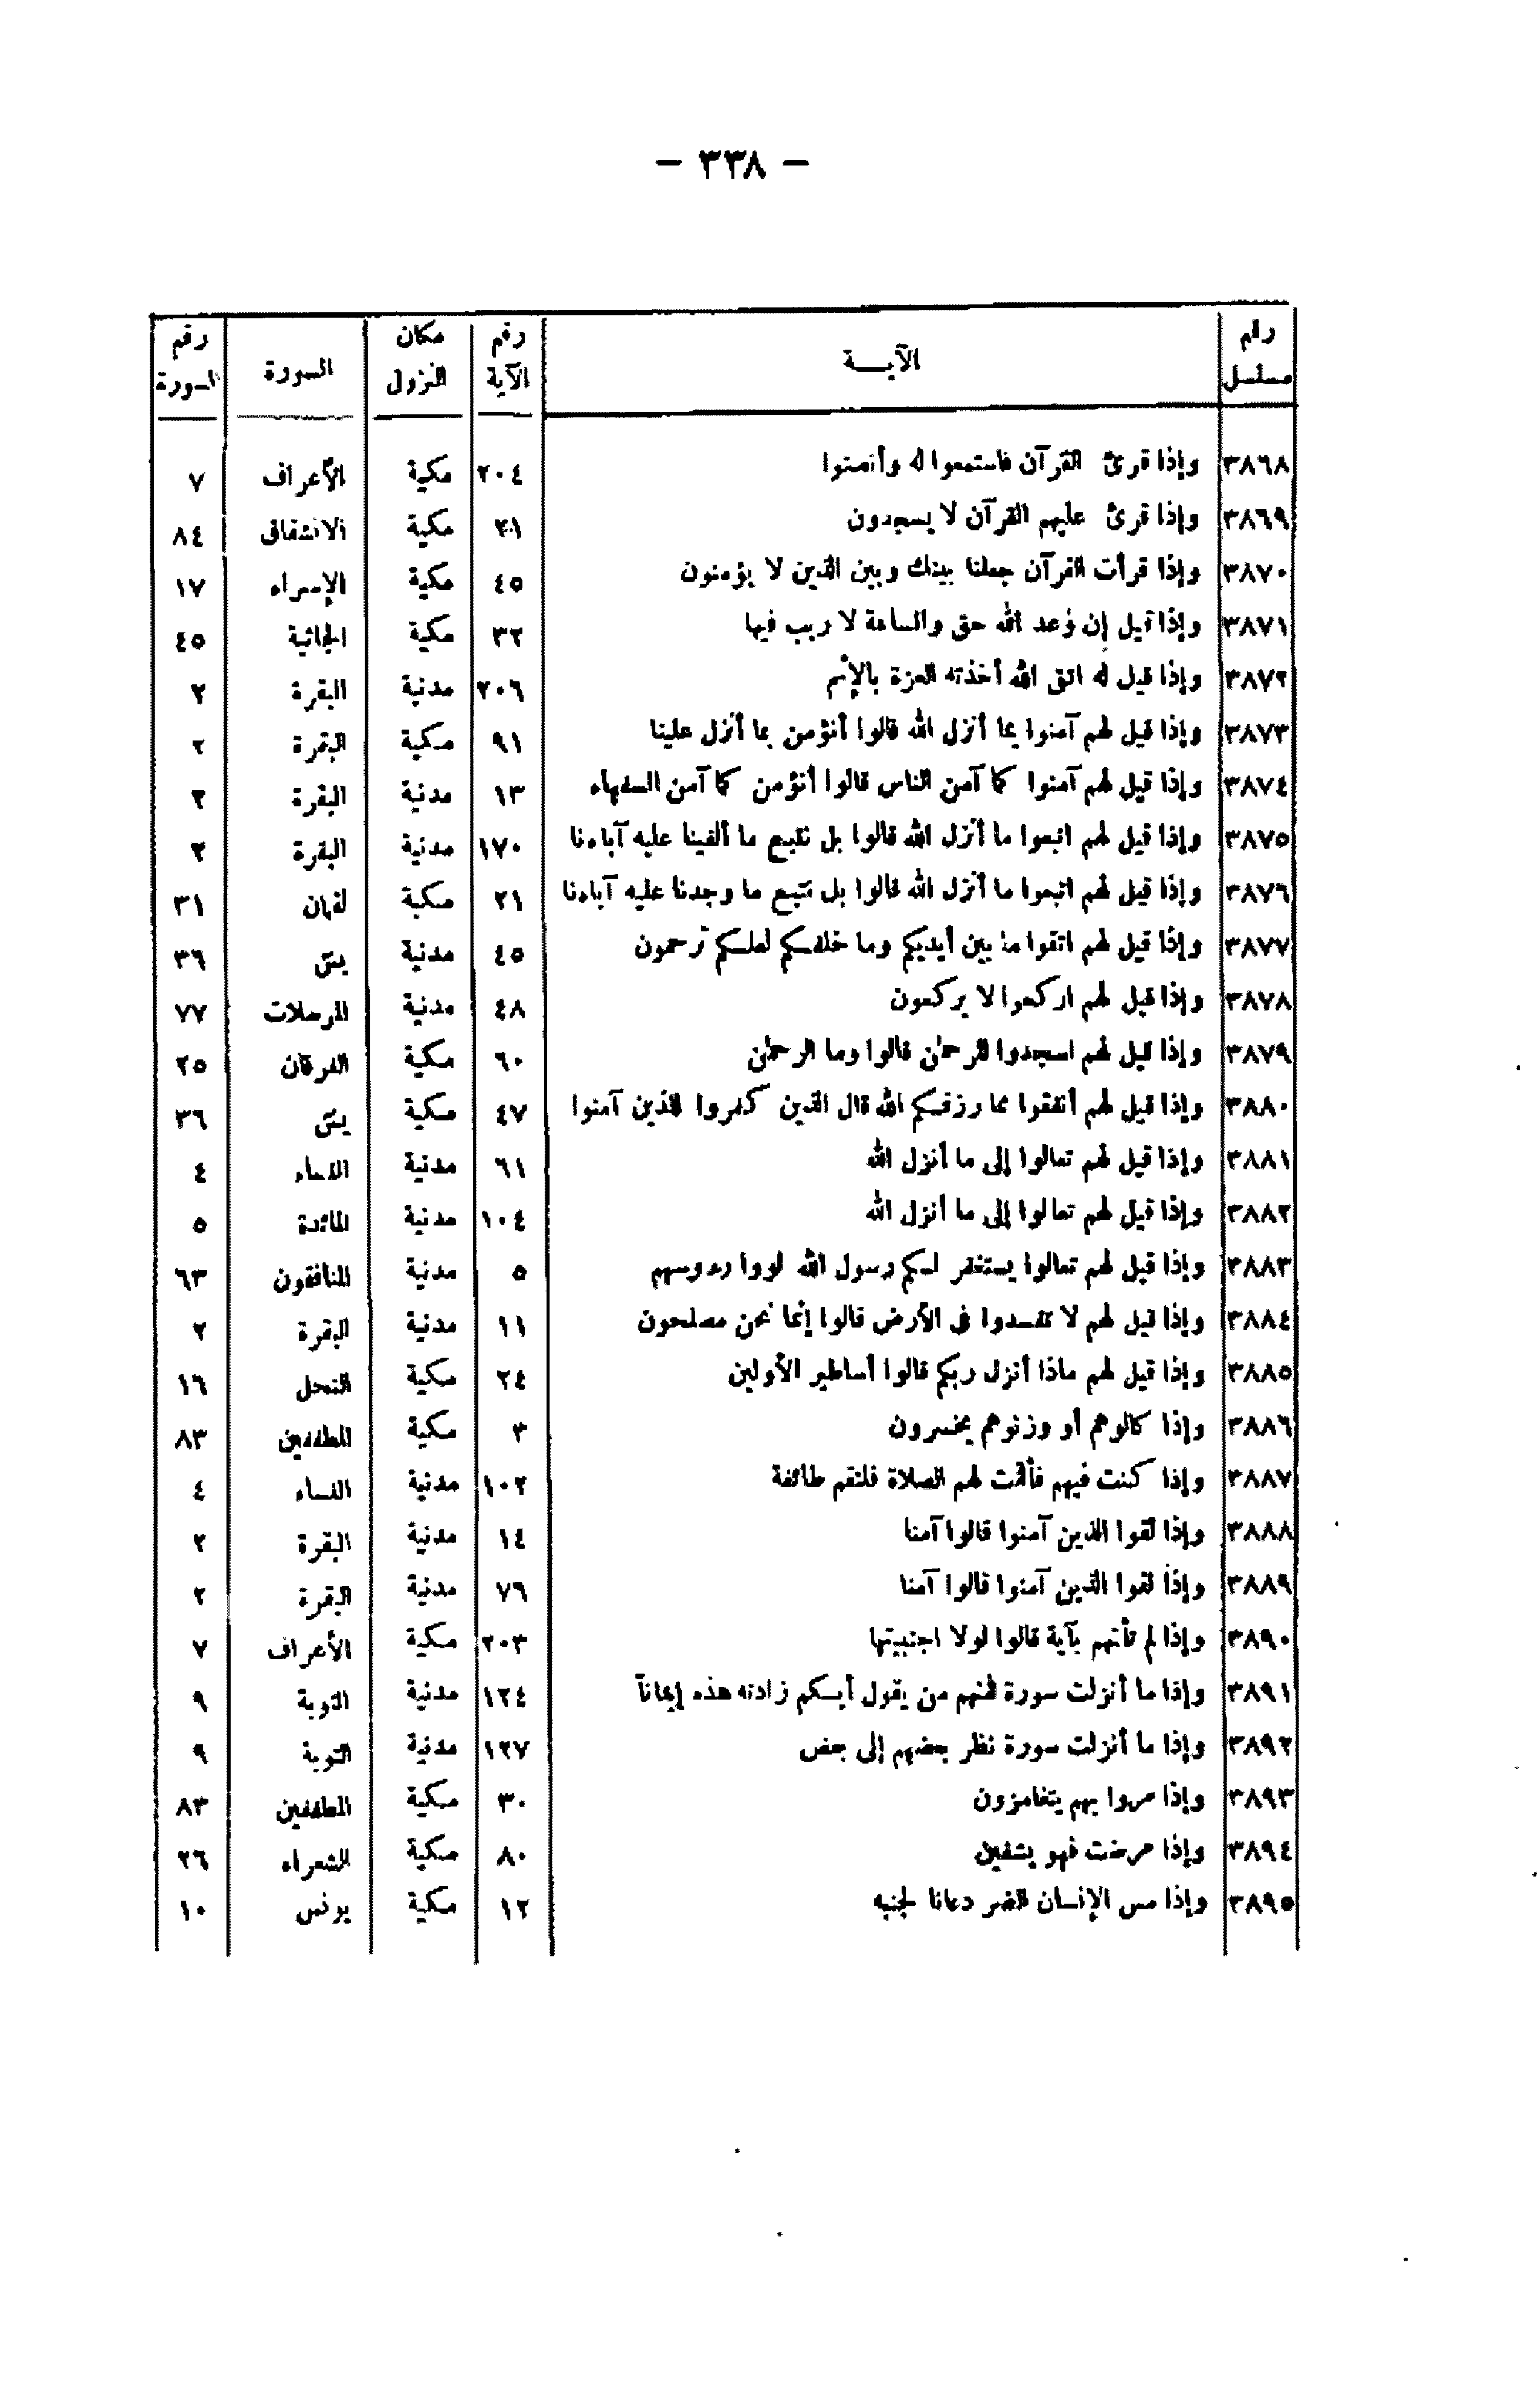 — ٣٣٨ —
رقم مسلسل الآيـــة رقم الآية مكان النزول السورة رقم السورة
٣٨٦٨ وإذا قرئ القرآن فاستمعوا له وأنصتوا ٢٠٤ مكية الأعراف ٧
٣٨٦٩ وإذا قرئ عليهم القرآن لا يسجدون ٢١ مكية الانشقاق ٨٤
٣٨٧٠ وإذا قرأت القرآن جعلنا بينك وبين الذين لا يؤمنون ٤٥ مكية الإسراء ١٧
٣٨٧١ وإذا قيل إن وعد الله حق والساعة لا ريب فيها ٣٢ مكية الجاثية ٤٥
٣٨٧٢ وإذا قيل له اتق الله أخذته العزة بالإثم ٢٠٦ مدنية البقرة ٢
٣٨٧٣ وإذا قيل لهم آمنوا بما أنزل الله قالوا أنؤمن بما أنزل علينا ٩١ مكية البقرة ٢
٣٨٧٤ وإذا قيل لهم آمنوا كما آمن الناس قالوا أنؤمن كما آمن السفهاء ١٣ مدنية البقرة ٢
٣٨٧٥ وإذا قيل لهم اتبعوا ما أنزل الله قالوا بل نتبع ما ألفينا عليه آباءنا ١٧٠ مدنية البقرة ٢
٣٨٧٦ وإذا قيل لهم اتبعوا ما أنزل الله قالوا بل نتبع ما وجدنا عليه آباءنا ٢١ مكية لقمان ٣١
٣٨٧٧ وإذا قيل لهم اتقوا ما بين أيديكم وما خلفكم لعلكم ترحمون ٤٥ مدنية يس ٣٦
٣٨٧٨ وإذا قيل لهم اركعوا لا يركعون ٤٨ مدنية المرسلات ٧٧
٣٨٧٩ وإذا قيل لهم اسجدوا للرحمن قالوا وما الرحمن ٦٠ مكية الفرقان ٢٥
٣٨٨٠ وإذا قيل لهم أنفقوا مما رزقكم الله قال الذين كفروا للذين آمنوا ٤٧ مكية يس ٣٦
٣٨٨١ وإذا قيل لهم تعالوا إلى ما أنزل الله ٦١ مدنية النساء ٤
٣٨٨٢ وإذا قيل لهم تعالوا إلى ما أنزل الله ١٠٤ مدنية المائدة ٥
٣٨٨٣ وإذا قيل لهم تعالوا يستغفر لكم رسول الله لووا رءوسهم ٥ مدنية المنافقون ٦٣
٣٨٨٤ وإذا قيل لهم لا تفسدوا فى الأرض قالوا إنما نحن مصلحون ١١ مدنية البقرة ٢
٣٨٨٥ وإذا قيل لهم ماذا أنزل ربكم قالوا أساطير الأولين ٢٤ مكية النحل ١٦
٣٨٨٦ وإذا كالوهم أو وزنوهم يخسرون ٣ مكية المطففين ٨٣
٣٨٨٧ وإذا كنت فيهم فأقمت لهم الصلاة فلتقم طائفة ١٠٢ مدنية النساء ٤
٣٨٨٨ وإذا لقوا الذين آمنوا قالوا آمنا ١٤ مدنية البقرة ٢
٣٨٨٩ وإذا لقوا الذين آمنوا قالوا آمنا ٧٩ مدنية البقرة ٢
٣٨٩٠ وإذا لم تأتهم بآية قالوا لولا اجتبيتها ٢٠٣ مكية الأعراف ٧
٣٨٩١ وإذا ما أنزلت سورة فمنهم من يقول أيكم زادته هذه إيماناً ١٢٤ مدنية التوبة ٩
٣٨٩٢ وإذا ما أنزلت سورة نظر بعضهم إلى بعض ١٢٧ مدنية التوبة ٩
٣٨٩٣ وإذا مروا بهم يتغامزون ٣٠ مكية المطففين ٨٣
٣٨٩٤ وإذا مرضت فهو يشفين ٨٠ مكية الشعراء ٢٦
٣٨٩٥ وإذا مس الإنسان الضر دعانا لجنبه ١٢ مكية يونس ١٠